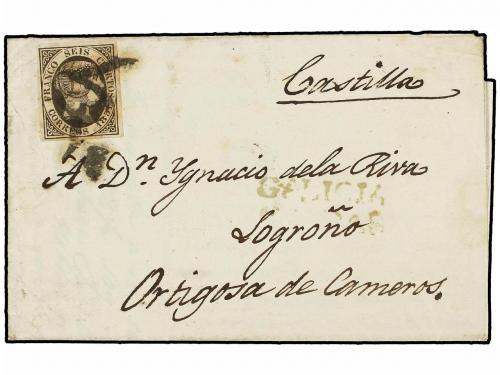 FRANCO SEIS CUARTOS
CORREOS
Castilla
A Dn. Ygnacio de la Riva
GALICIA
Logroño
Ortigosa de Cameros.